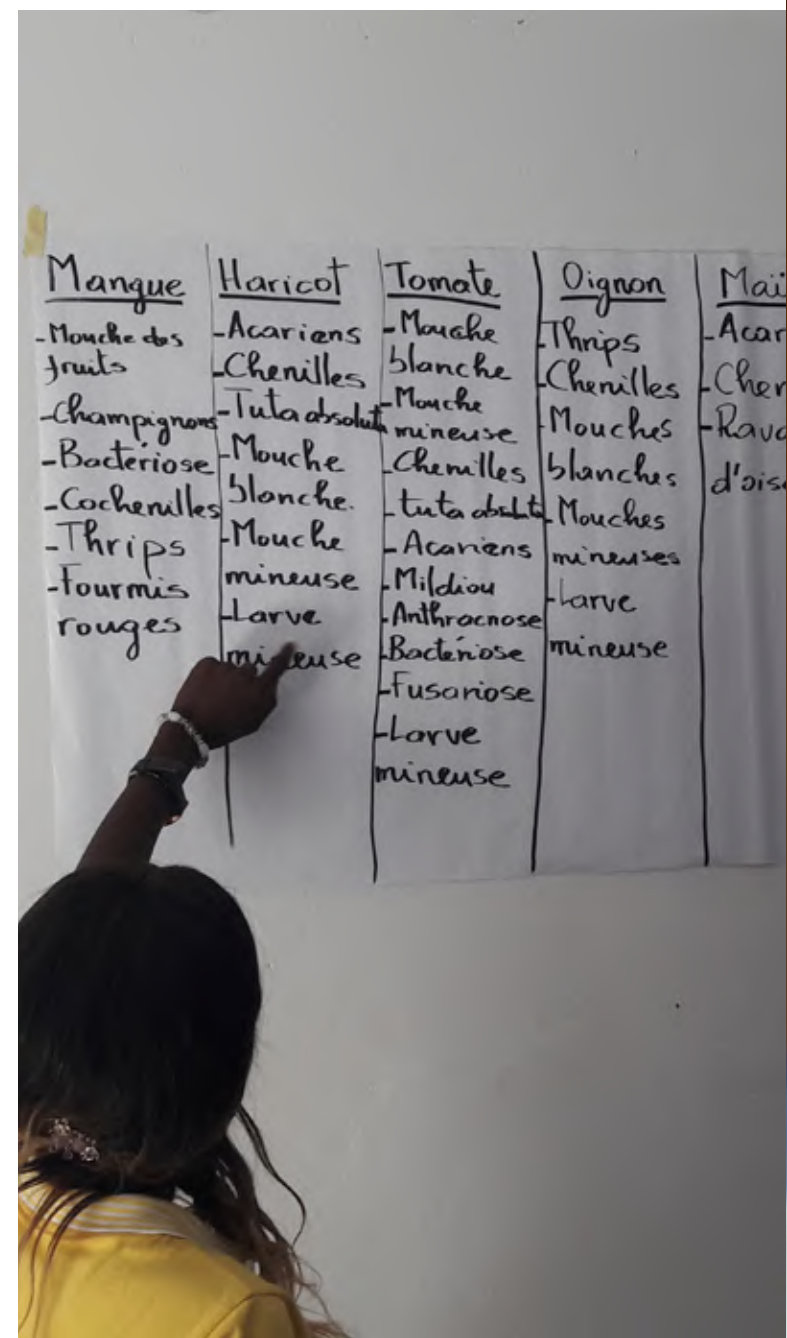 Mangue
- Mouche des
fruits
- Champignons
- Bactériose
- Cochenilles
- Thrips
- Fourmis
rouges
Haricot
- Acariens
- Chenilles
- Tuta absoluta
- Mouche
blanche.
- Mouche
mineuse
- Larve
mineuse
Tomate
- Mouche
blanche
- Mouche
mineuse
- Chenilles
- tuta absoluta
- Acariens
- Mildiou
- Anthracnose
- Bactériose
- Fusariose
- Larve
mineuse
Oignon
- Thrips
- Chenilles
- Mouches
blanches
- Mouches
mineuses
- Larve
mineuse
Maï
- Acar
- Chen
- Rava
d'oise